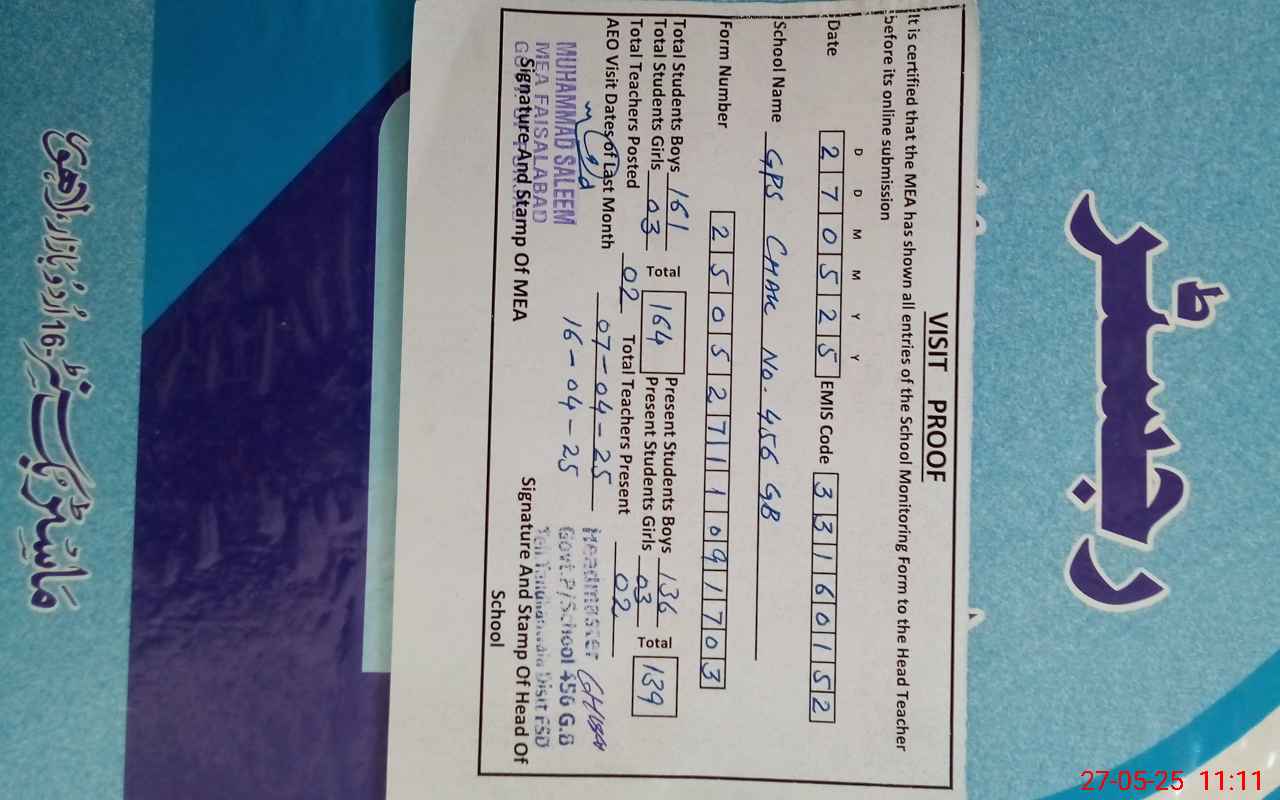 VISIT PROOF
It is certified that the MEA has shown all entries of the School Monitoring Form to the Head Teacher
before its online submission
D D M M Y Y
Date 2 7 0 5 2 5 EMIS Code 3 3 1 6 0 1 5 2
School Name GPS CHAK No. 456 GB
Form Number 2 5 0 5 2 7 1 1 0 9 1 7 0 3
Total Students Boys 161 Total 164 Present Students Boys 136 Total 139
Total Students Girls 03 Present Students Girls 03
Total Teachers Posted 02 Total Teachers Present 02
AEO Visit Dates of Last Month 07-04-25
16-04-25
MUHAMMAD SALEEM
MEA FAISALABAD
Signature And Stamp Of MEA
Headmaster
Govt. P/School 456 G.B
Signature And Stamp Of Head Of
School
رجسٹر
27-05-25 11:11